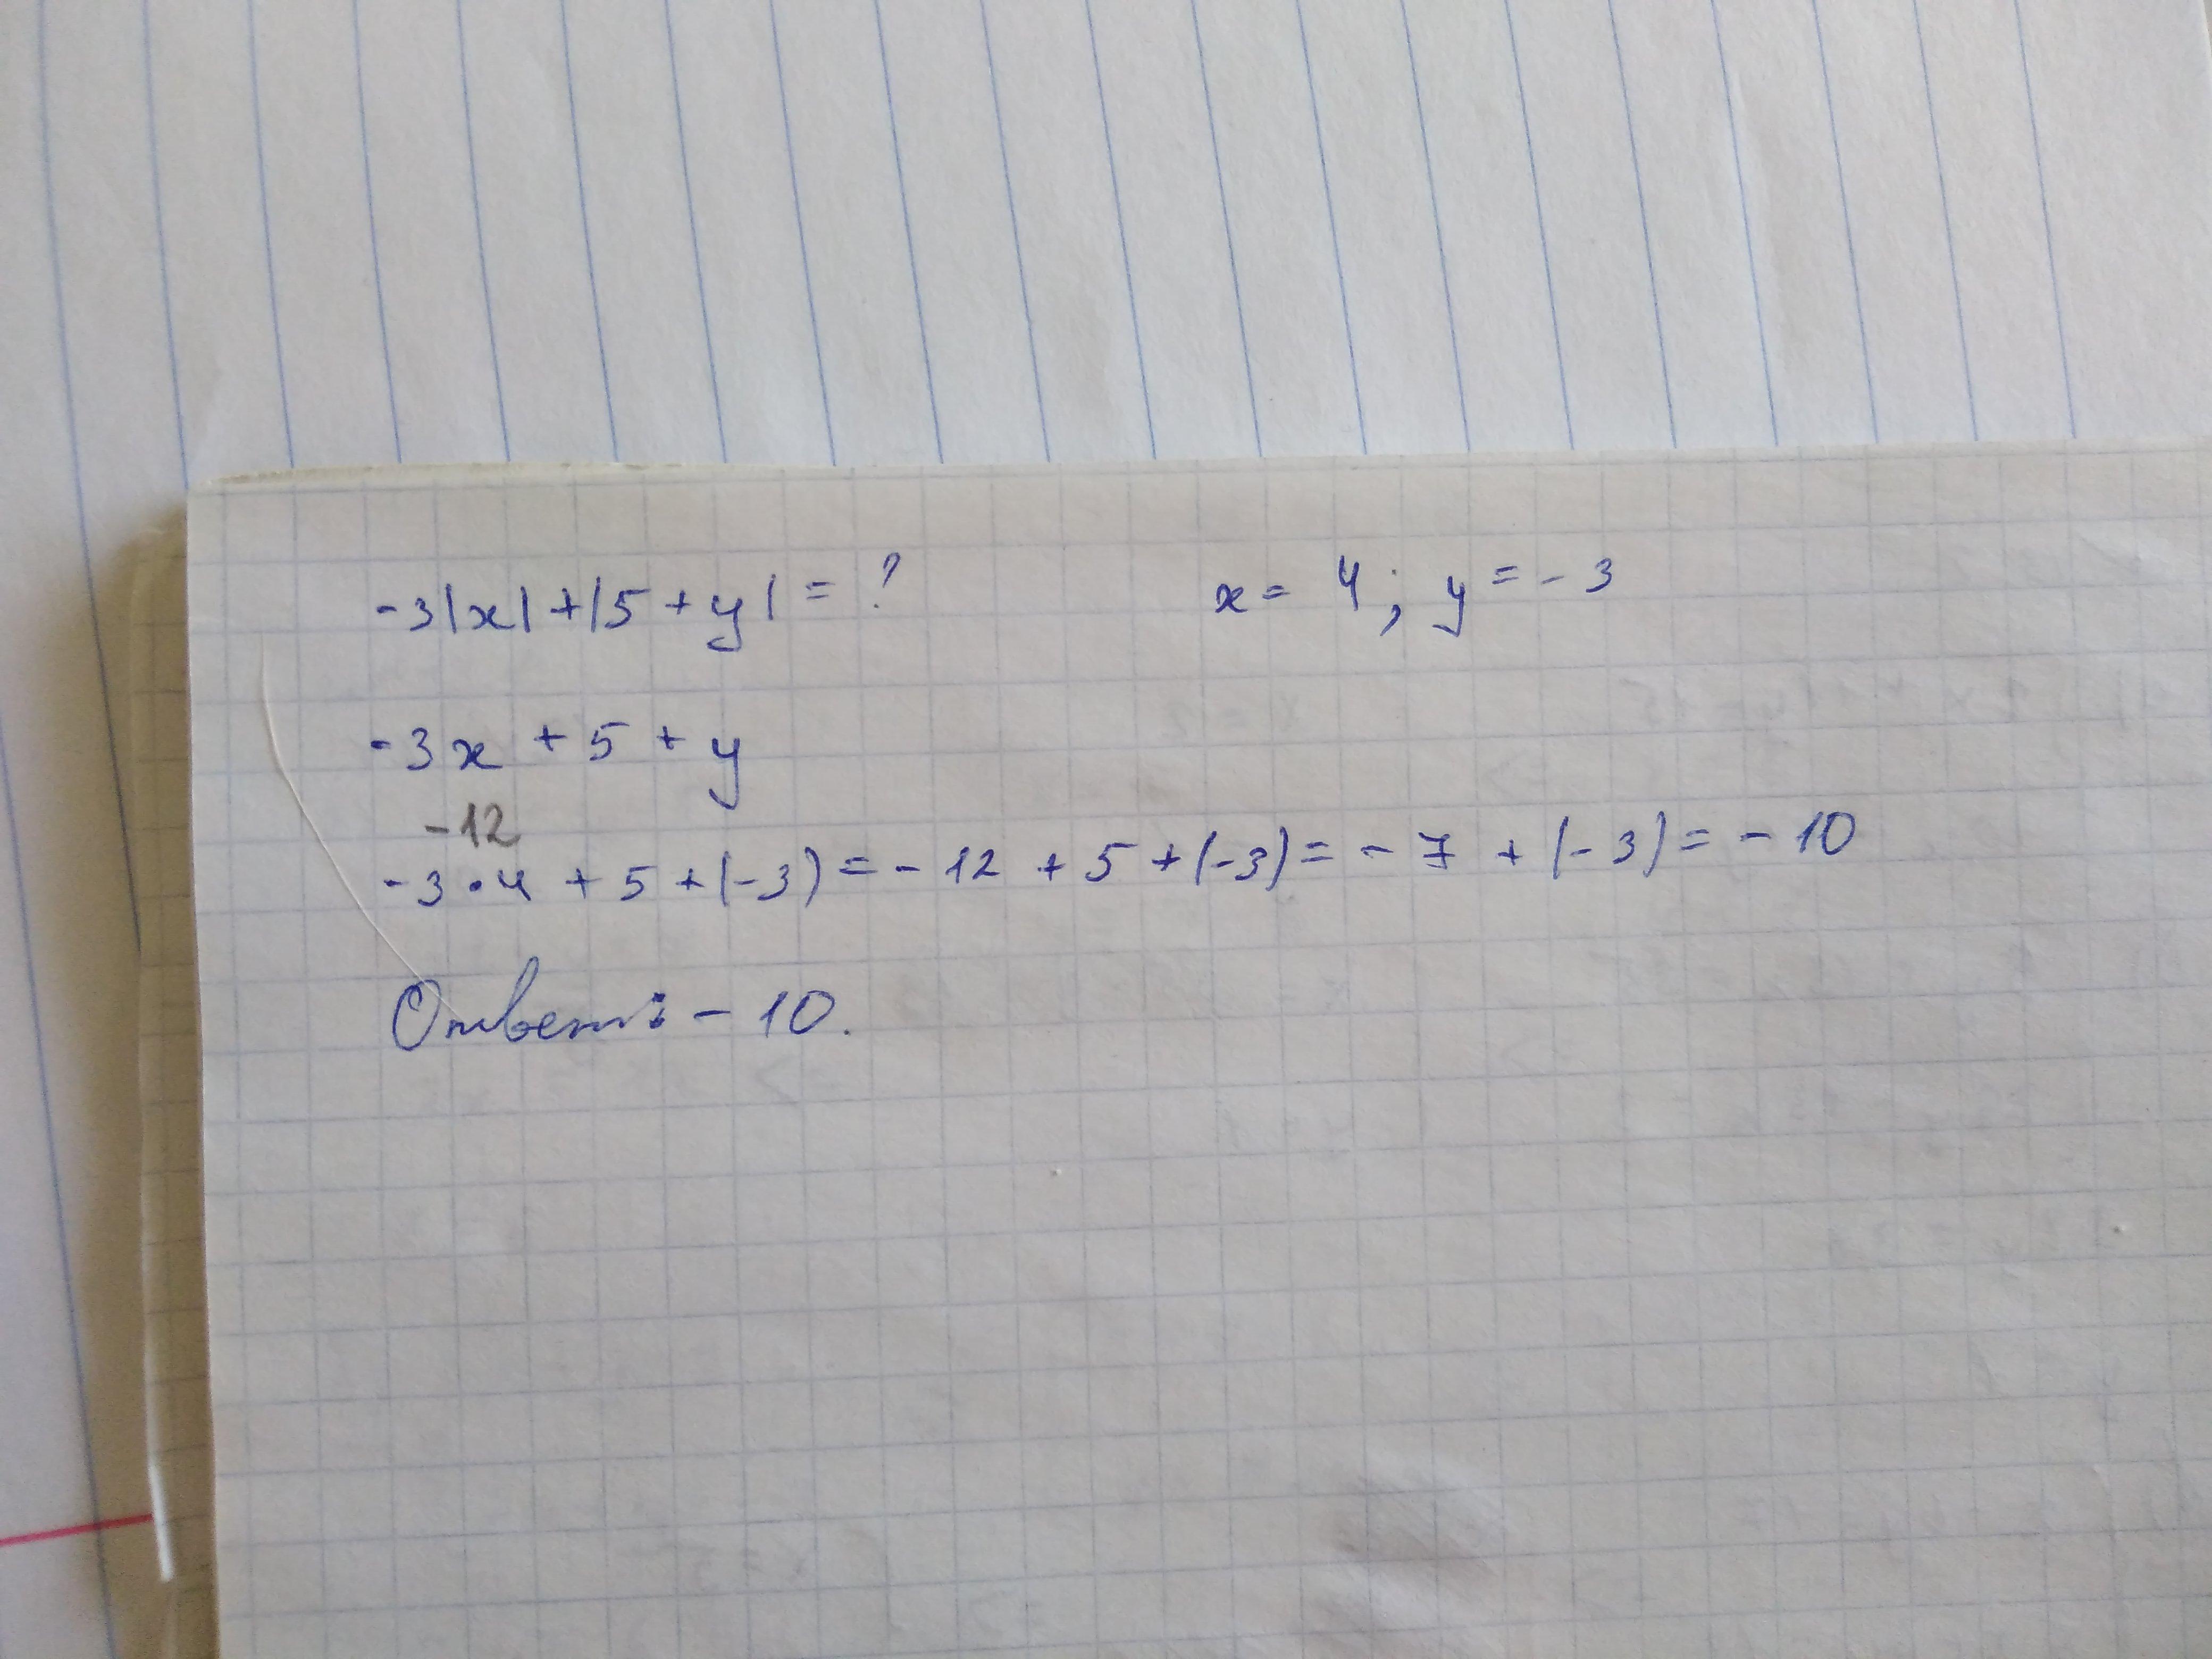 -3|x| + |5 + y| = ? x = 4; y = - 3
-3x + 5 + y
-12
-3·4 + 5 + (-3) = - 12 + 5 + (-3) = - 7 + (- 3) = - 10
Ответ: - 10.